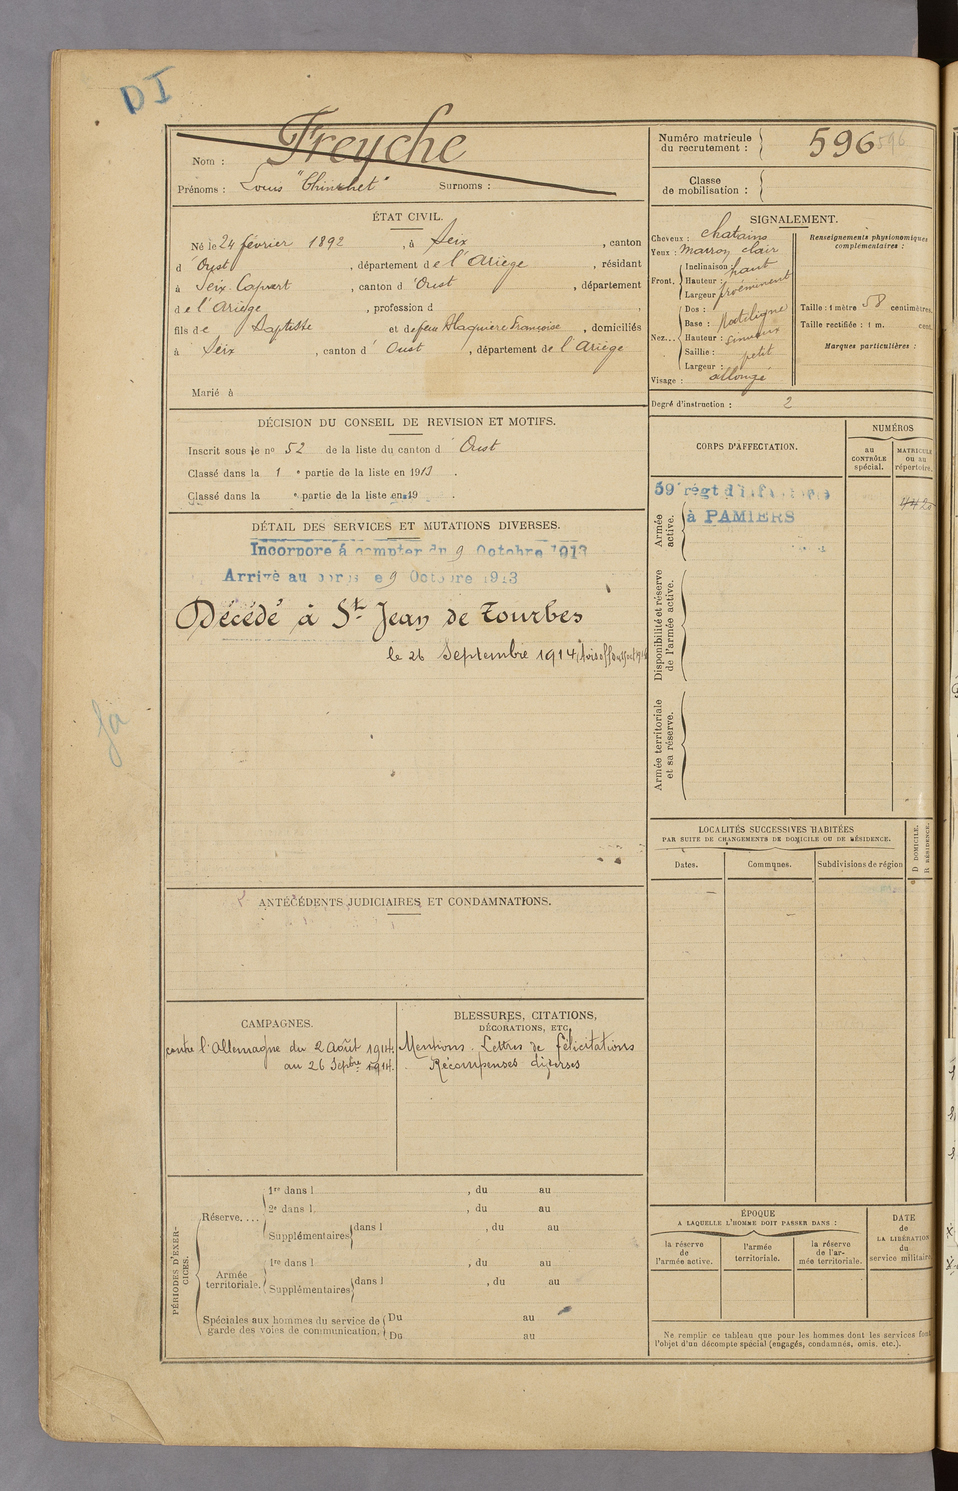 DI
Nom : Freyche
Prénoms : Louis "Chinchet" Surnoms :
Numéro matricule du recrutement : 596 596
Classe de mobilisation :
ÉTAT CIVIL.
Né le 24 février 1892, à Seix, canton
d'Oust, département de l'Ariège, résidant
à Seix, canton d'Oust, département
de l'Ariège, profession d
fils de Baptiste et de feu Françoise, domiciliés
à Seix, canton d'Oust, département de l'Ariège
Marié à
SIGNALEMENT.
Cheveux : chatains
Yeux : marron clair
Front. Inclinaison : haut
Hauteur :
Largeur : proéminent
Nez... Dos :
Base : Rectiligne
Hauteur : sinueux
Saillie : petit
Largeur :
Visage : allongé
Renseignements physionomiques complémentaires :
Taille : 1 mètre 58 centimètres.
Taille rectifiée : 1 m. cent.
Marques particulières :
Degré d'instruction : 2
DÉCISION DU CONSEIL DE REVISION ET MOTIFS.
Inscrit sous le nº 52 de la liste du canton d'Oust
Classé dans la 1e partie de la liste en 1913.
Classé dans la e partie de la liste en 19 .
CORPS D'AFFECTATION.
NUMÉROS
au CONTRÔLE spécial.
MATRICULE ou au répertoire.
Armée active.
59e régt d'infanterie
à PAMIERS
Disponibilité et réserve de l'armée active.
Armée territoriale et sa réserve.
DÉTAIL DES SERVICES ET MUTATIONS DIVERSES.
Incorporé à compter du 9 Octobre 1913
Arrivé au corps le 9 Octobre 1913
Décédé à St Jean de Tourbes
le 26 Septembre 1914
LOCALITÉS SUCCESSIVES HABITÉES
PAR SUITE DE CHANGEMENTS DE DOMICILE OU DE RÉSIDENCE.
Dates.
Communes.
Subdivisions de région
D DOMICILE.
R RÉSIDENCE.
ANTÉCÉDENTS JUDICIAIRES ET CONDAMNATIONS.
CAMPAGNES.
contre l'Allemagne du 2 Août 1914
au 26 Septbre 1914.
BLESSURES, CITATIONS,
DÉCORATIONS, ETC.
Mentions. Lettres de félicitations
Récompenses diverses
PÉRIODES D'EXERCICES.
Réserve....
1re dans l , du au
2e dans l , du au
Supplémentaires dans l , du au
Armée territoriale.
1re dans l , du au
Supplémentaires dans l , du au
Spéciales aux hommes du service de garde des voies de communication.
Du au
Du au
ÉPOQUE
A LAQUELLE L'HOMME DOIT PASSER DANS :
la réserve de l'armée active.
l'armée territoriale.
la réserve de l'armée territoriale.
DATE de LA LIBÉRATION du service militaire
Ne remplir ce tableau que pour les hommes dont les services font
l'objet d'un décompte spécial (engagés, condamnés, omis, etc.).